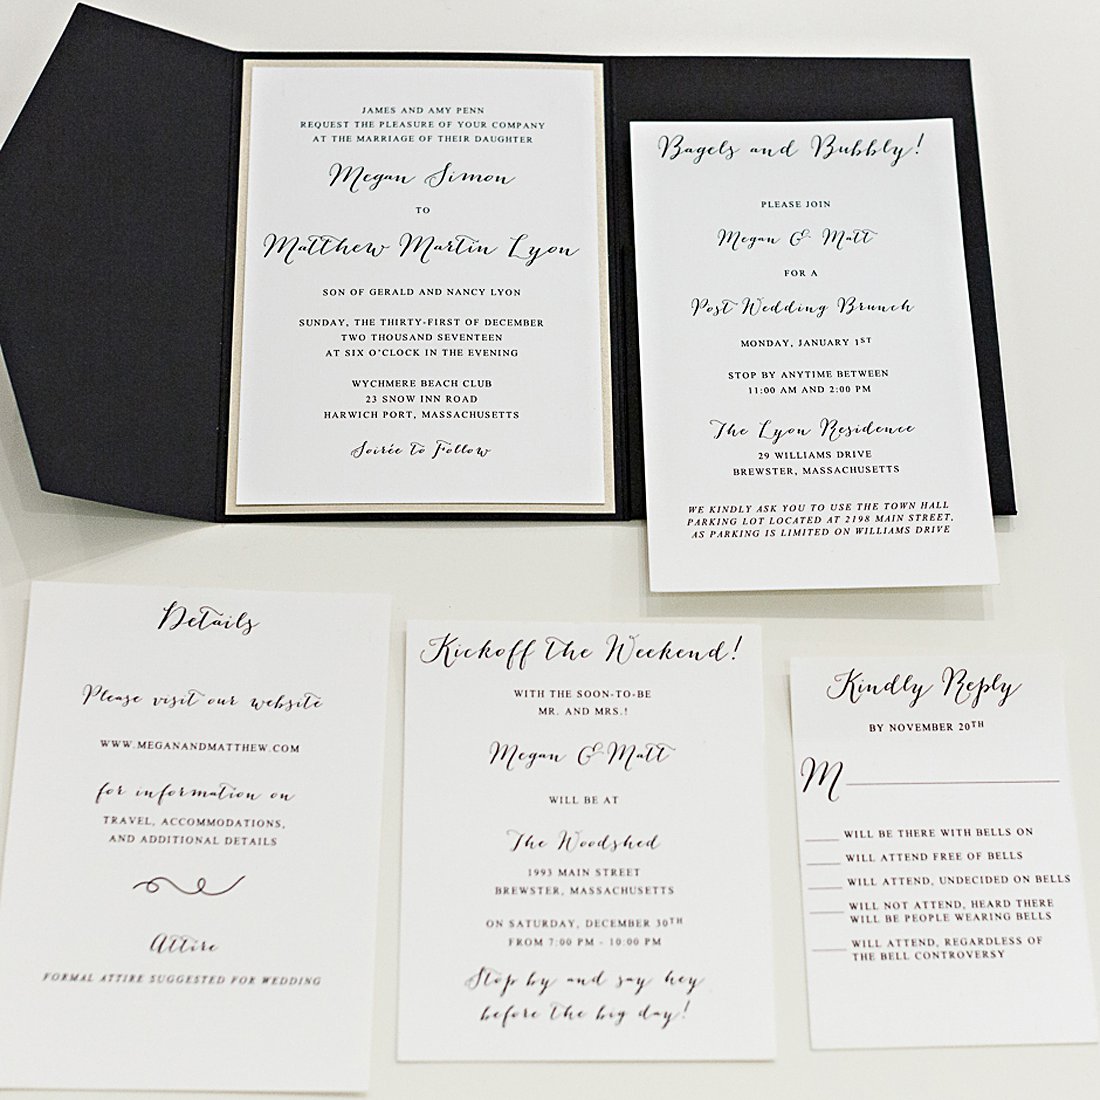 JAMES AND AMY PENN
REQUEST THE PLEASURE OF YOUR COMPANY
AT THE MARRIAGE OF THEIR DAUGHTER
Megan Simon
TO
Matthew Martin Lyon
SON OF GERALD AND NANCY LYON
SUNDAY, THE THIRTY-FIRST OF DECEMBER
TWO THOUSAND SEVENTEEN
AT SIX O'CLOCK IN THE EVENING
WYCHMERE BEACH CLUB
23 SNOW INN ROAD
HARWICH PORT, MASSACHUSETTS
Soirée to Follow
Bagels and Bubbly!
PLEASE JOIN
Megan & Matt
FOR A
Post Wedding Brunch
MONDAY, JANUARY 1ST
STOP BY ANYTIME BETWEEN
11:00 AM AND 2:00 PM
The Lyon Residence
29 WILLIAMS DRIVE
BREWSTER, MASSACHUSETTS
WE KINDLY ASK YOU TO USE THE TOWN HALL
PARKING LOT LOCATED AT 2198 MAIN STREET,
AS PARKING IS LIMITED ON WILLIAMS DRIVE
Details
Please visit our website
WWW.MEGANANDMATTHEW.COM
for information on
TRAVEL, ACCOMMODATIONS,
AND ADDITIONAL DETAILS
Attire
FORMAL ATTIRE SUGGESTED FOR WEDDING
Kickoff the Weekend!
WITH THE SOON-TO-BE
MR. AND MRS.!
Megan & Matt
WILL BE AT
The Woodshed
1993 MAIN STREET
BREWSTER, MASSACHUSETTS
ON SATURDAY, DECEMBER 30TH
FROM 7:00 PM - 10:00 PM
Stop by and say hey
before the big day!
Kindly Reply
BY NOVEMBER 20TH
M
WILL BE THERE WITH BELLS ON
WILL ATTEND FREE OF BELLS
WILL ATTEND, UNDECIDED ON BELLS
WILL NOT ATTEND, HEARD THERE
WILL BE PEOPLE WEARING BELLS
WILL ATTEND, REGARDLESS OF
THE BELL CONTROVERSY